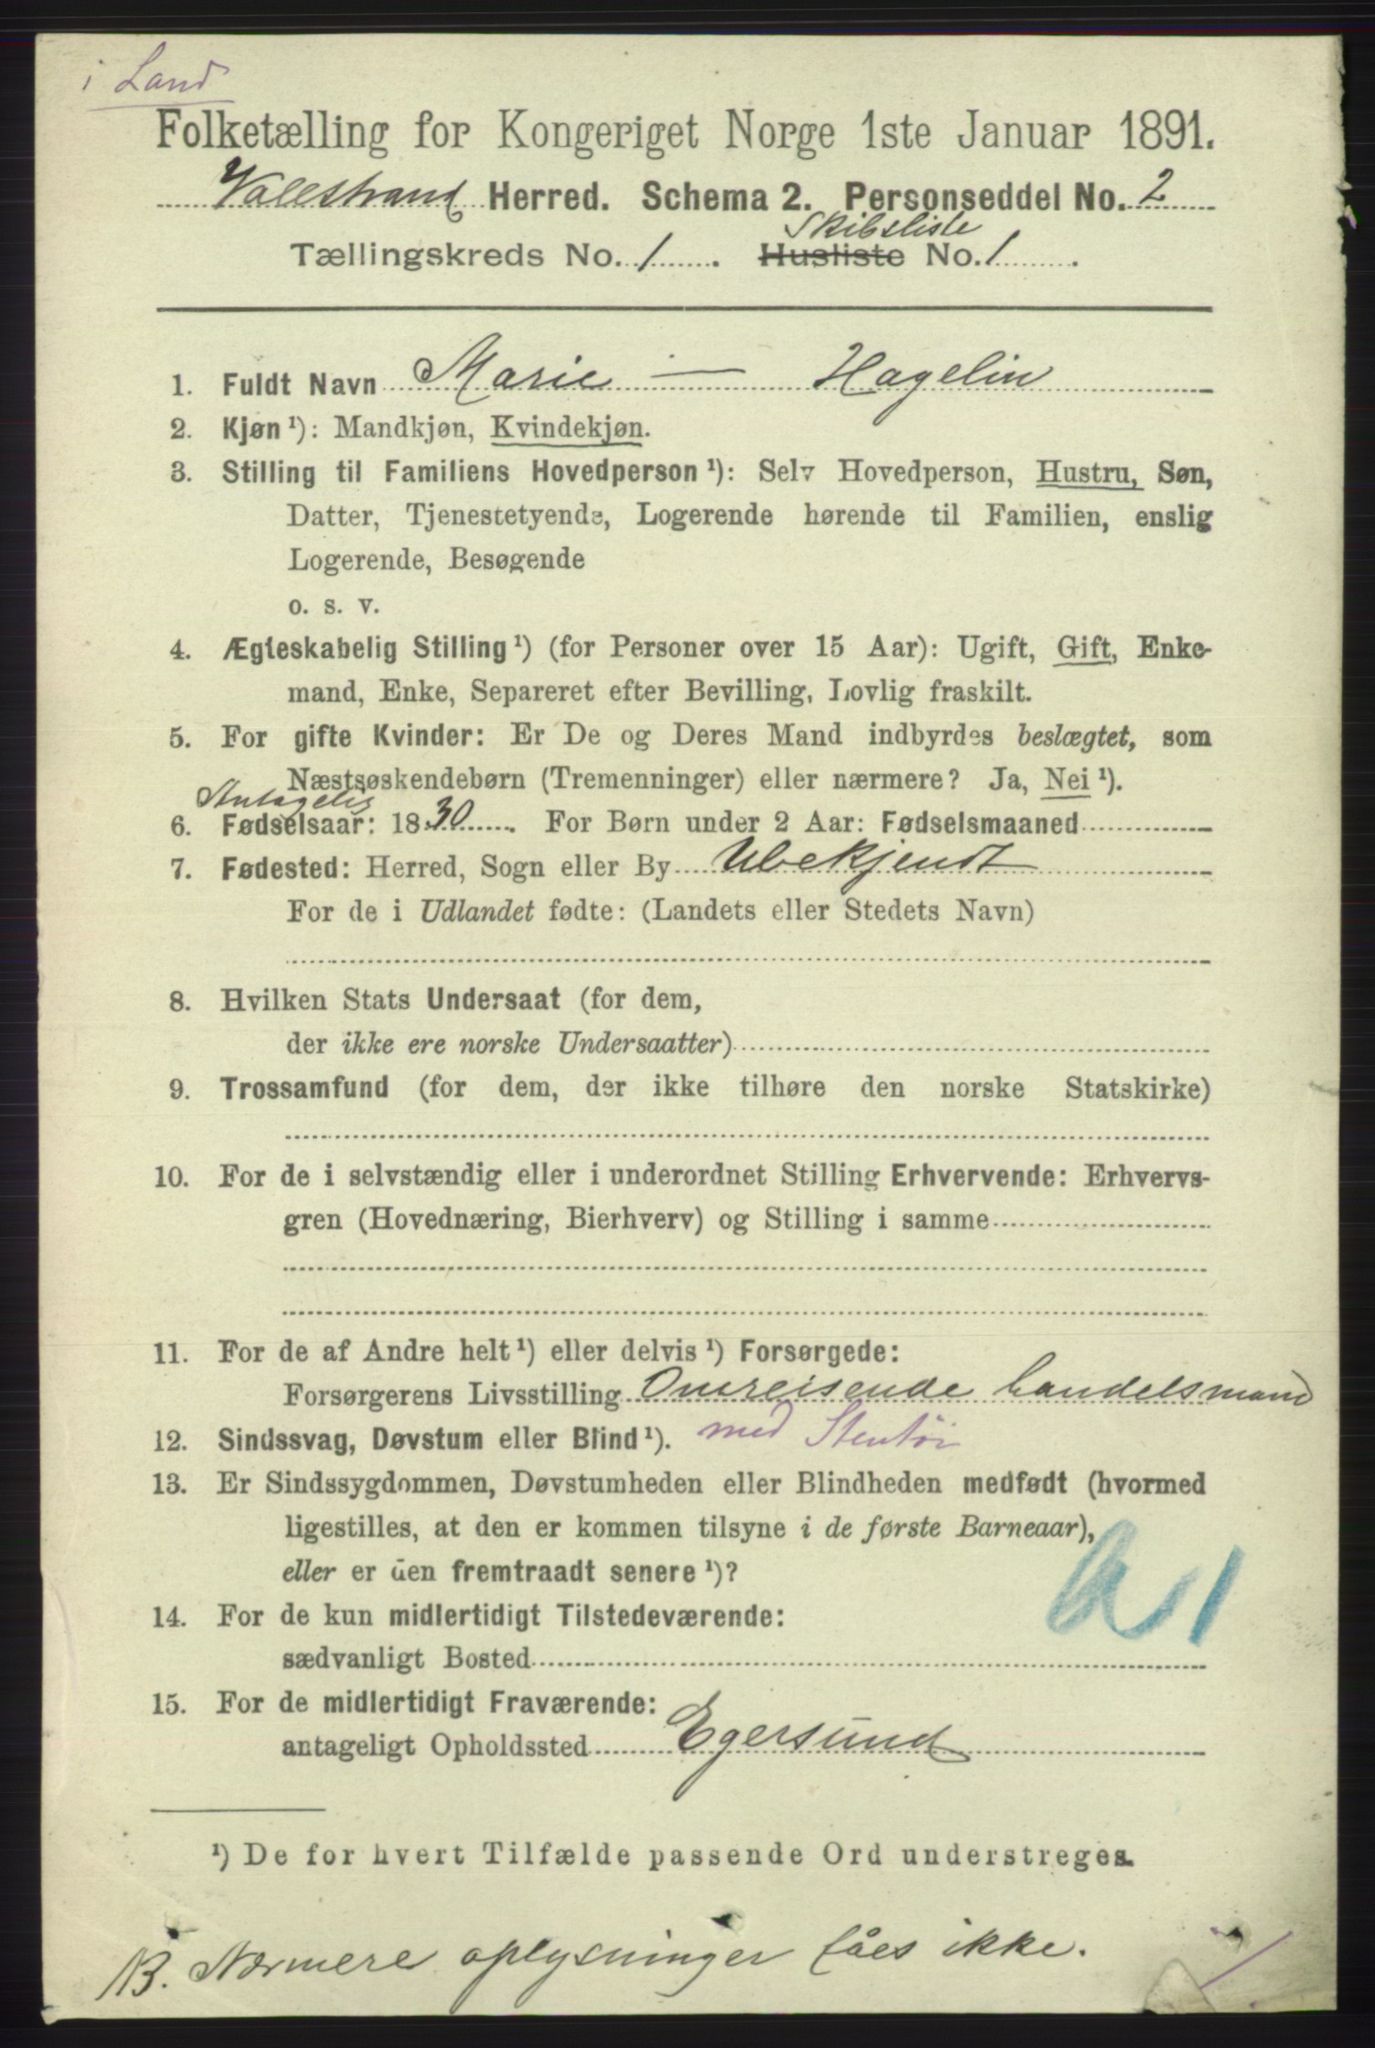 i Land
Folketælling for Kongeriget Norge 1ste Januar 1891.
Valestrand Herred. Schema 2. Personseddel No. 2
Skibsliste
Tællingskreds No. 1. Husliste No. 1.
1. Fuldt Navn Marie — Hagelin
2. Kjøn ¹): Mandkjøn, Kvindekjøn.
3. Stilling til Familiens Hovedperson ¹): Selv Hovedperson, Hustru, Søn,
Datter, Tjenestetyende, Logerende hørende til Familien, enslig
Logerende, Besøgende
o. s. v.
4. Ægteskabelig Stilling ¹) (for Personer over 15 Aar): Ugift, Gift, Enke-
mand, Enke, Separeret efter Bevilling, Lovlig fraskilt.
5. For gifte Kvinder: Er De og Deres Mand indbyrdes beslægtet, som
Næstsøskendebørn (Tremenninger) eller nærmere? Ja, Nei ¹).
Antagelig
6. Fødselsaar: 1830. For Børn under 2 Aar: Fødselsmaaned
7. Fødested: Herred, Sogn eller By Ubekjendt
For de i Udlandet fødte: (Landets eller Stedets Navn)
8. Hvilken Stats Undersaat (for dem,
der ikke ere norske Undersaatter)
9. Trossamfund (for dem, der ikke tilhøre den norske Statskirke)
10. For de i selvstændig eller i underordnet Stilling Erhvervende: Erhvervs-
gren (Hovednæring, Bierhverv) og Stilling i samme
11. For de af Andre helt ¹) eller delvis ¹) Forsørgede:
Forsørgerens Livsstilling Omreisende handelsmand
med Stentøi
12. Sindssvag, Døvstum eller Blind ¹).
13. Er Sindssygdommen, Døvstumheden eller Blindheden medfødt (hvormed
ligestilles, at den er kommen tilsyne i de første Barneaar),
eller er den fremtraadt senere ¹)?
14. For de kun midlertidigt Tilstedeværende:
sædvanligt Bosted
15. For de midlertidigt Fraværende:
antageligt Opholdssted Egersund
¹) De for hvert Tilfælde passende Ord understreges.
NB. Nærmere oplysninger fåes ikke.